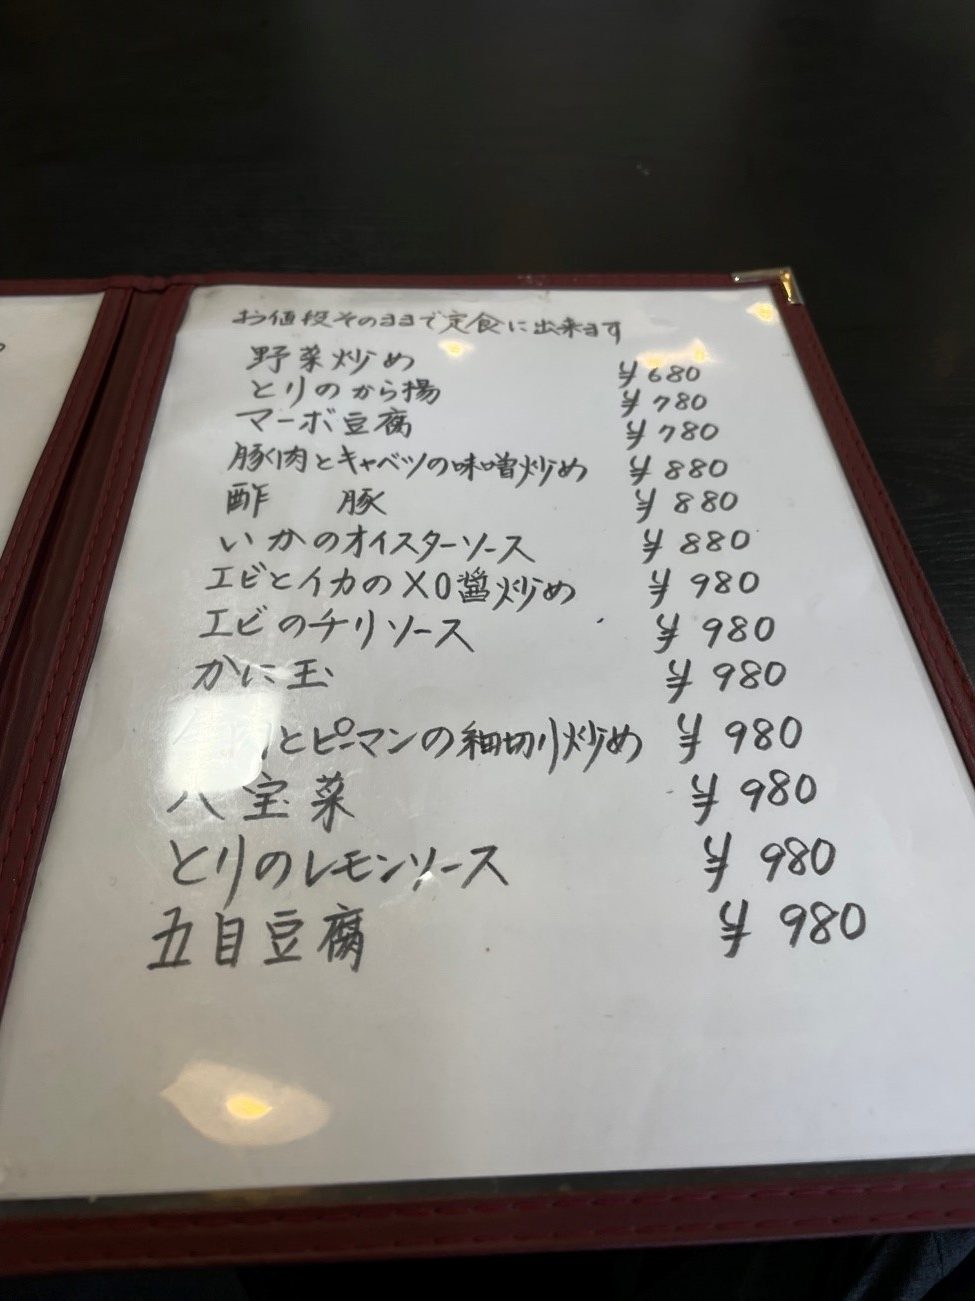 お値段そのままで定食に出来ます
野菜炒め ¥680
とりのから揚 ¥780
マーボ豆腐 ¥780
豚肉とキャベツの味噌炒め ¥880
酢 豚 ¥880
いかのオイスターソース ¥880
エビとイカのXO醤炒め ¥980
エビのチリソース ¥980
かに玉 ¥980
肉とピーマンの細切り炒め ¥980
八宝菜 ¥980
とりのレモンソース ¥980
五目豆腐 ¥980